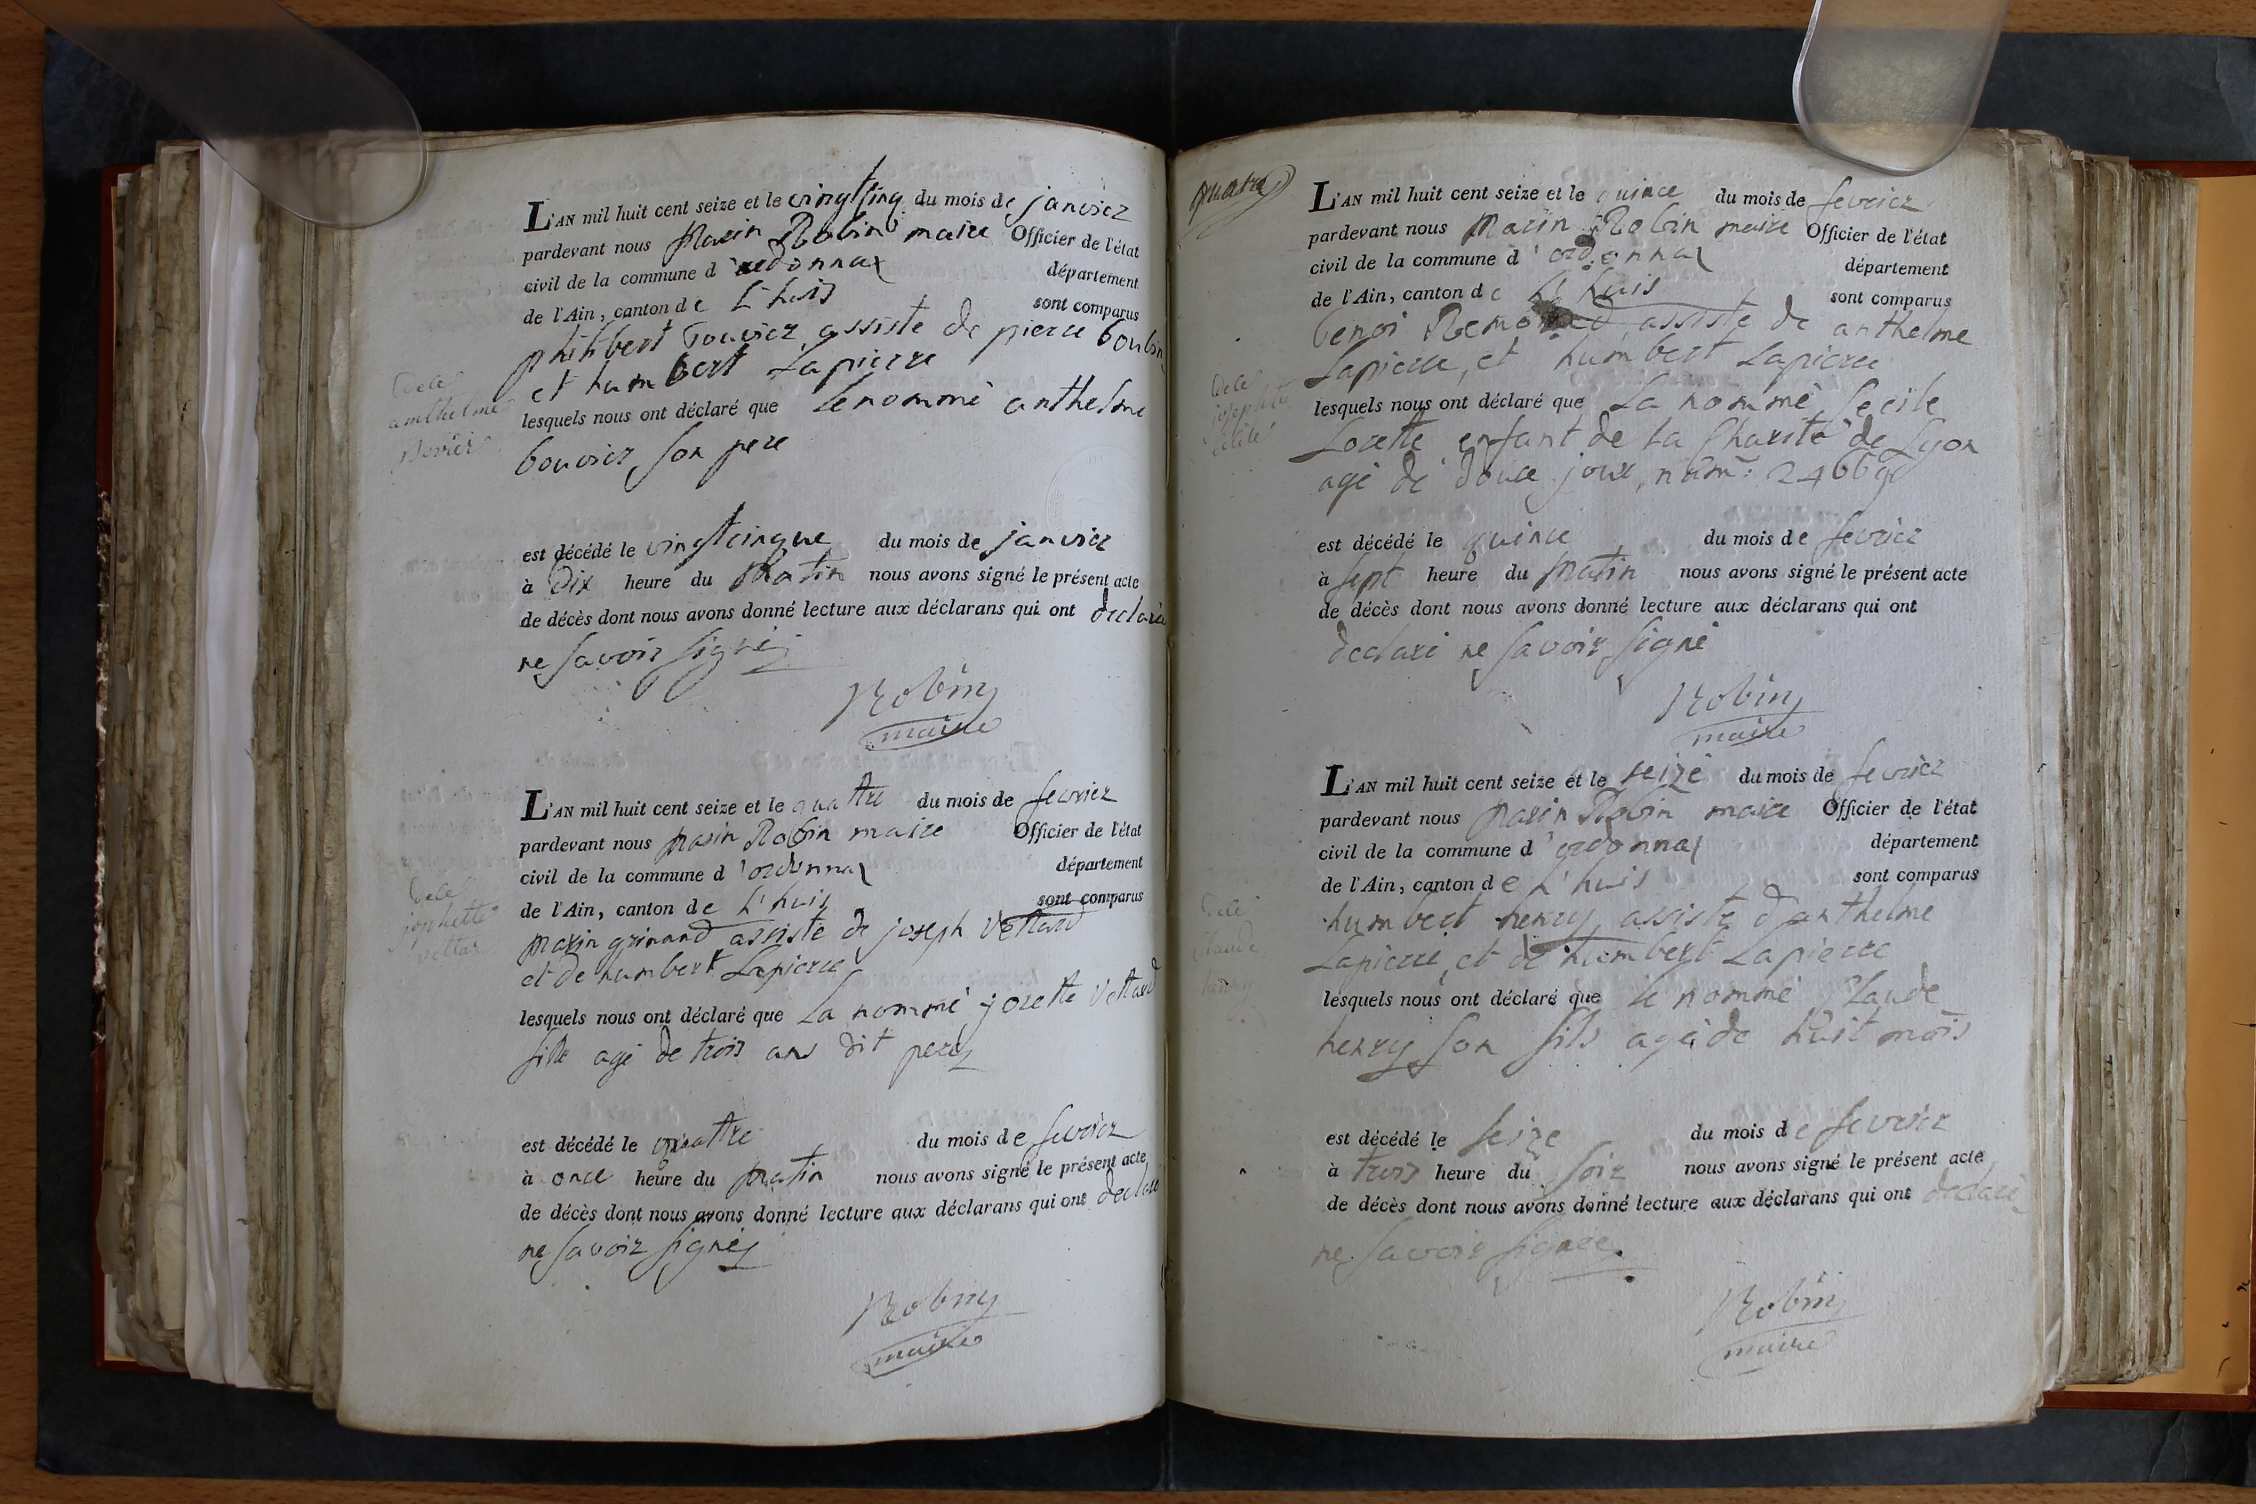 L'AN mil huit cent seize et le vingtsinq du mois de janvier
pardevant nous Marin Robin maire Officier de l'état
civil de la commune d'ordonnax département
de l'Ain, canton de L'huis sont comparus
philibert Bouvier, assisté de pierre
et humbert Lapierre
lesquels nous ont déclaré que Le nommé anthelme
bouvier son pere
est décédé le vingtcinque du mois de janvier
à Dix heure du Matin nous avons signé le présent acte
de décès dont nous avons donné lecture aux déclarans qui ont declaré
ne savoir signé
Robin
maire
Décè
anthelme
L'AN mil huit cent seize et le quattre du mois de fevrier
pardevant nous Marin Robin maire Officier de l'état
civil de la commune d'ordonnax département
de l'Ain, canton de L'huis sont comparus
Marin grinand assisté de joseph Vettard
et de humbert Lapierre
lesquels nous ont déclaré que La nommé josette Vettard
fille agé de trois ans dit perey
est décédé le quattre du mois de fevrier
à once heure du Matin nous avons signé le présent acte
de décès dont nous avons donné lecture aux déclarans qui ont declaré
ne savoir signé
Robin
maire
Décè
josphette
vettar
quatre
L'AN mil huit cent seize et le quince du mois de fevrier
pardevant nous Marin Robin maire Officier de l'état
civil de la commune d'ordonnax département
de l'Ain, canton de L'huis sont comparus
benoi Remond, assisté de anthelme
Lapierre, et humbert Lapierre
lesquels nous ont déclaré que La nommé Secile
Lorette enfant de La Charité de Lyon
agé de douce joux, num:
est décédé le quince du mois de fevrier
à sept heure du Matin nous avons signé le présent acte
de décès dont nous avons donné lecture aux déclarans qui ont
declaré ne savoir signé
Robin
maire
Décè
L'AN mil huit cent seize et le seize du mois de fevrier
pardevant nous Marin Robin maire Officier de l'état
civil de la commune d'ordonnax département
de l'Ain, canton de L'huis sont comparus
humbert henry, assisté d'anthelme
Lapierre, et de humbert Lapierre
lesquels nous ont déclaré que le nommé Claude
henry son fils agé de huit mois
est décédé le seize du mois de fevrier
à trois heure du soir nous avons signé le présent acte
de décès dont nous avons donné lecture aux déclarans qui ont declaré
ne savoir signee
Robin
maire
Décè
Claude
henry